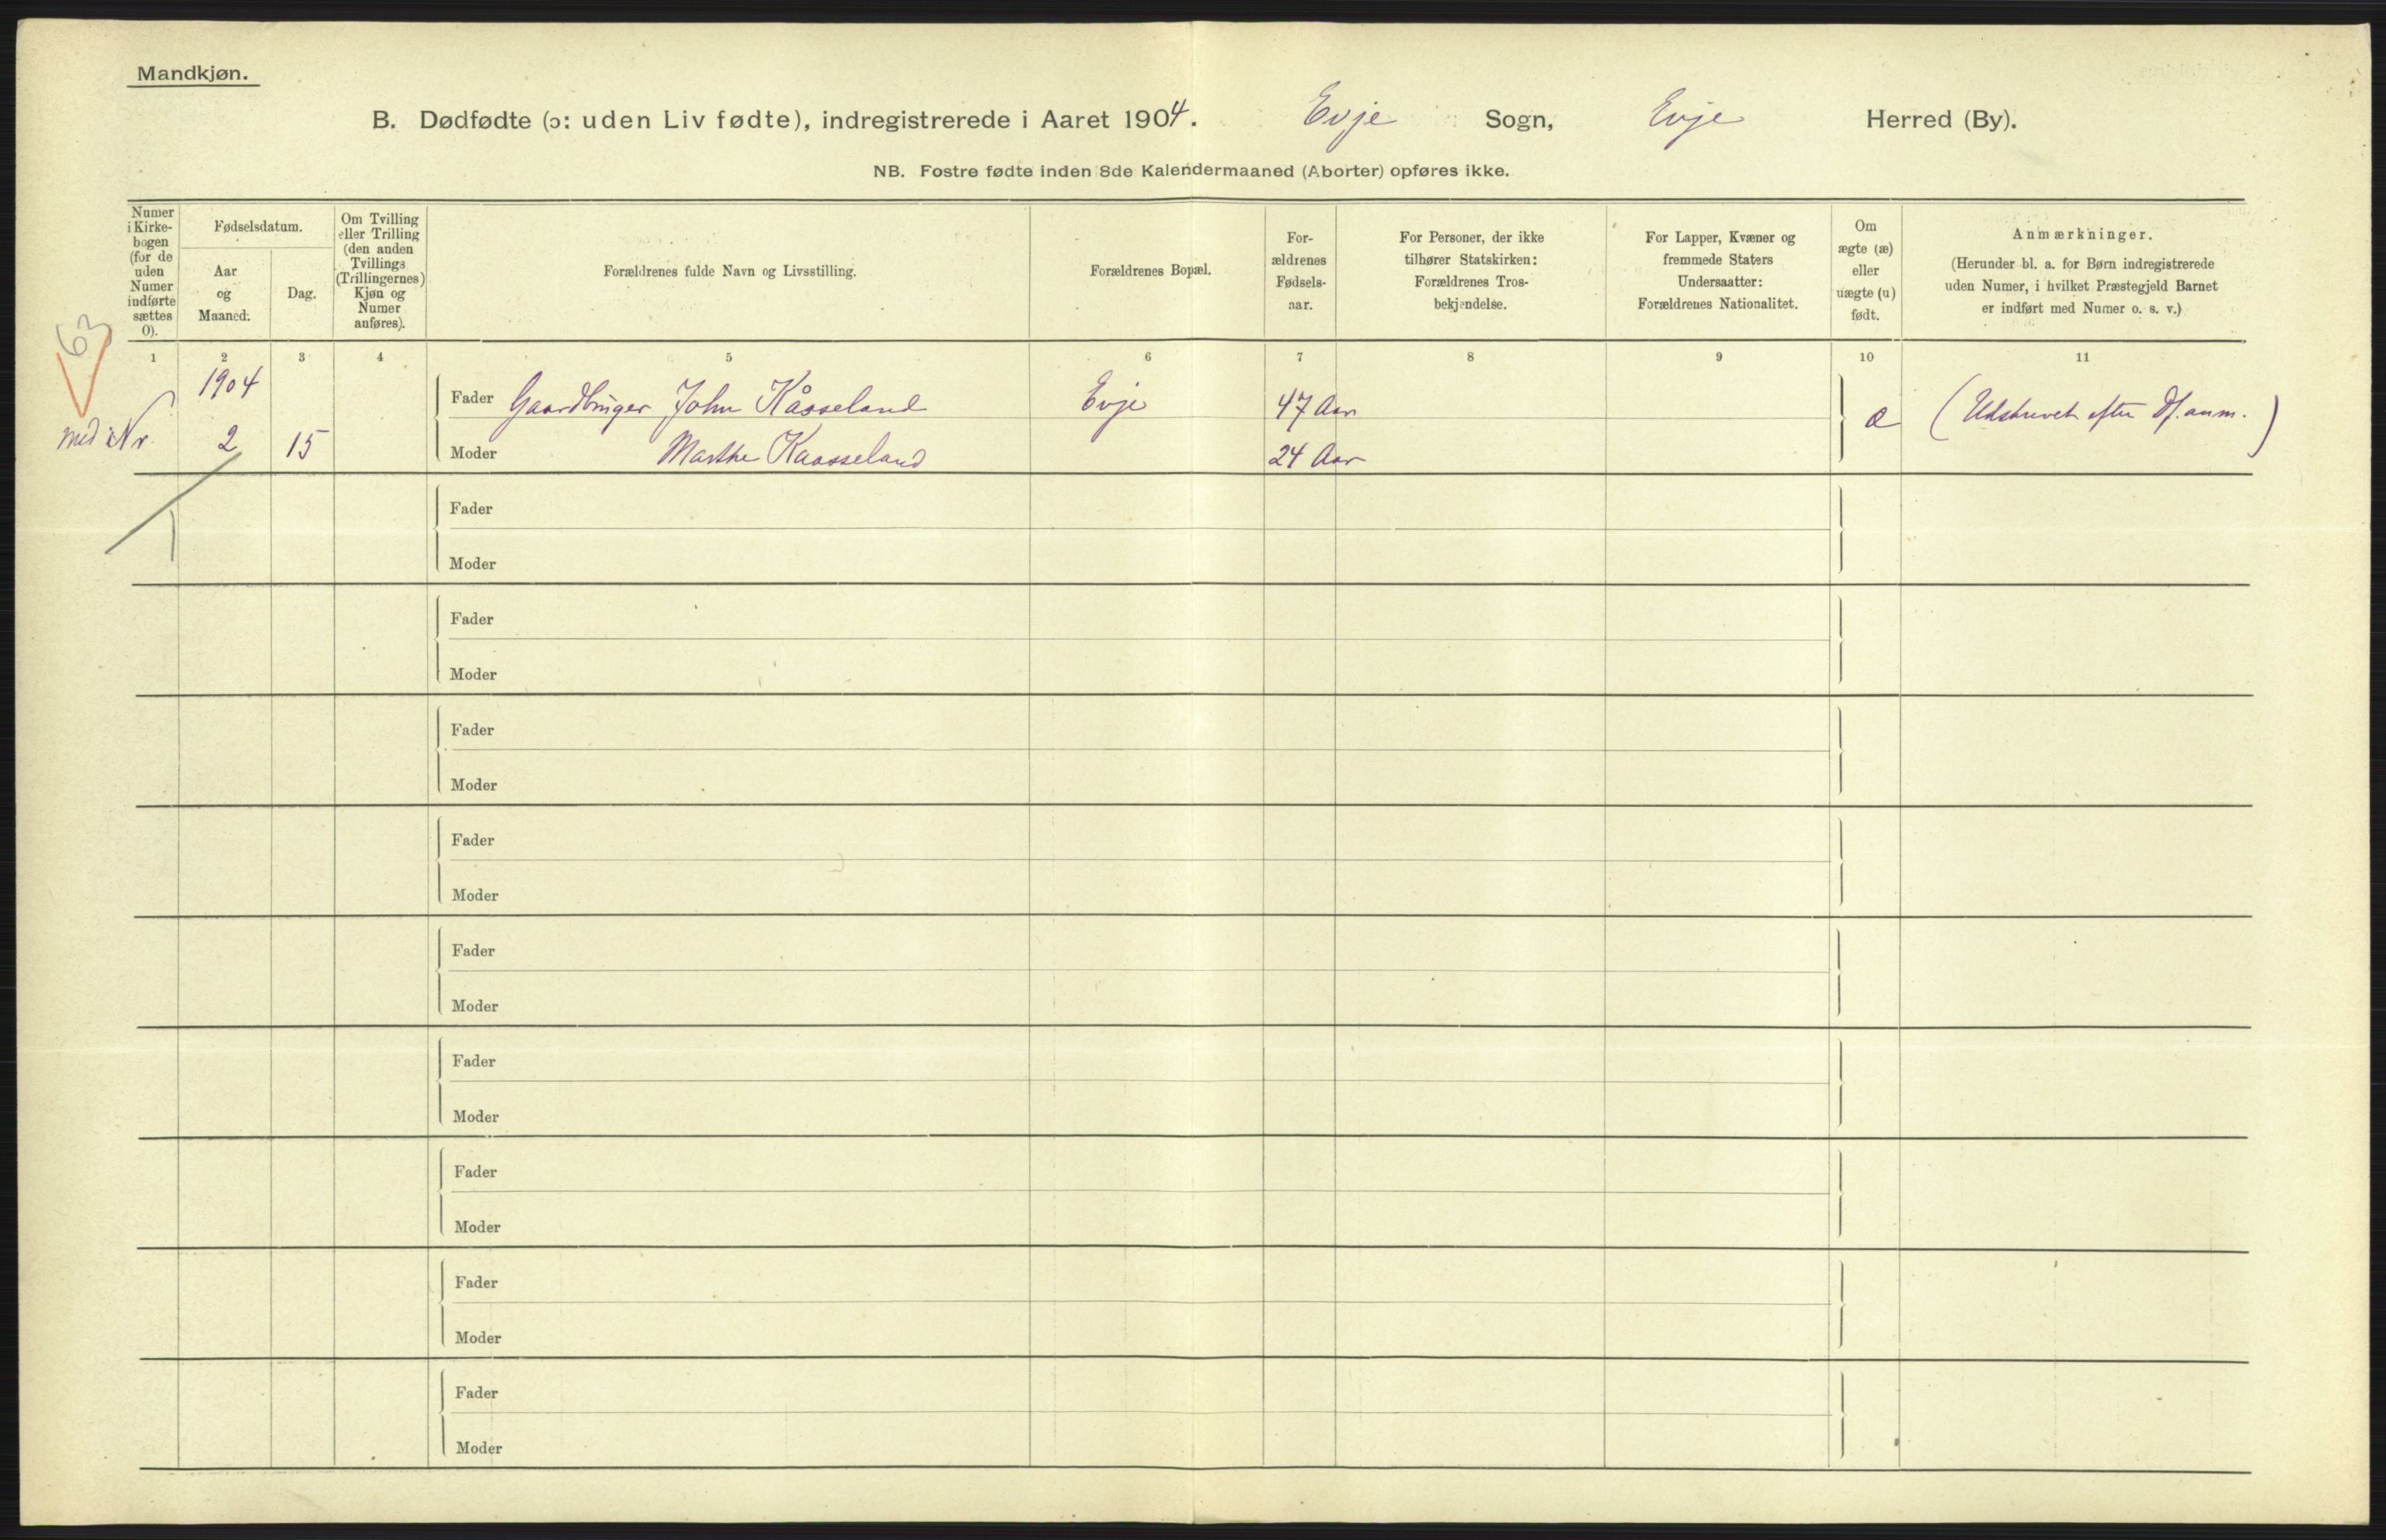 Mandkjøn.
B. Dødfødte (ɔ: uden Liv fødte), indregistrerede i Aaret 1904. Evje Sogn, Evje Herred (By).
NB. Fostre fødte inden 8de Kalendermaaned (Aborter) opføres ikke.
Numer
i Kirke-
bogen
(for de
uden
Numer
indførte
sættes
0).
Fødselsdatum.
Aar
og
Maaned.
Dag.
Om Tvilling
eller Trilling
(den anden
Tvillings
(Trillingernes)
Kjøn og
Numer
anføres).
Forældrenes fulde Navn og Livsstilling.
Forældrenes Bopæl.
For-
ældrenes
Fødsels-
aar.
For Personer, der ikke
tilhører Statskirken:
Forældrenes Tros-
bekjendelse.
For Lapper, Kvæner og
fremmede Staters
Undersaatter:
Forældrenes Nationalitet.
Om
ægte (æ)
eller
uægte (u)
født.
Anmærkninger.
(Herunder bl. a. for Børn indregistrerede
uden Numer, i hvilket Præstegjeld Barnet
er indført med Numer o. s. v.)
63
1 2 3 4 5 6 7 8 9 10 11
1904
Fader Gaardbruger John Kåsseland Evje 47 Aar
med Nr 2 15 æ (Udskrevet efter Df. anm.)
Moder Marthe Kaasseland 24 Aar
Fader
Moder
Fader
Moder
Fader
Moder
Fader
Moder
Fader
Moder
Fader
Moder
Fader
Moder
Fader
Moder
Fader
Moder